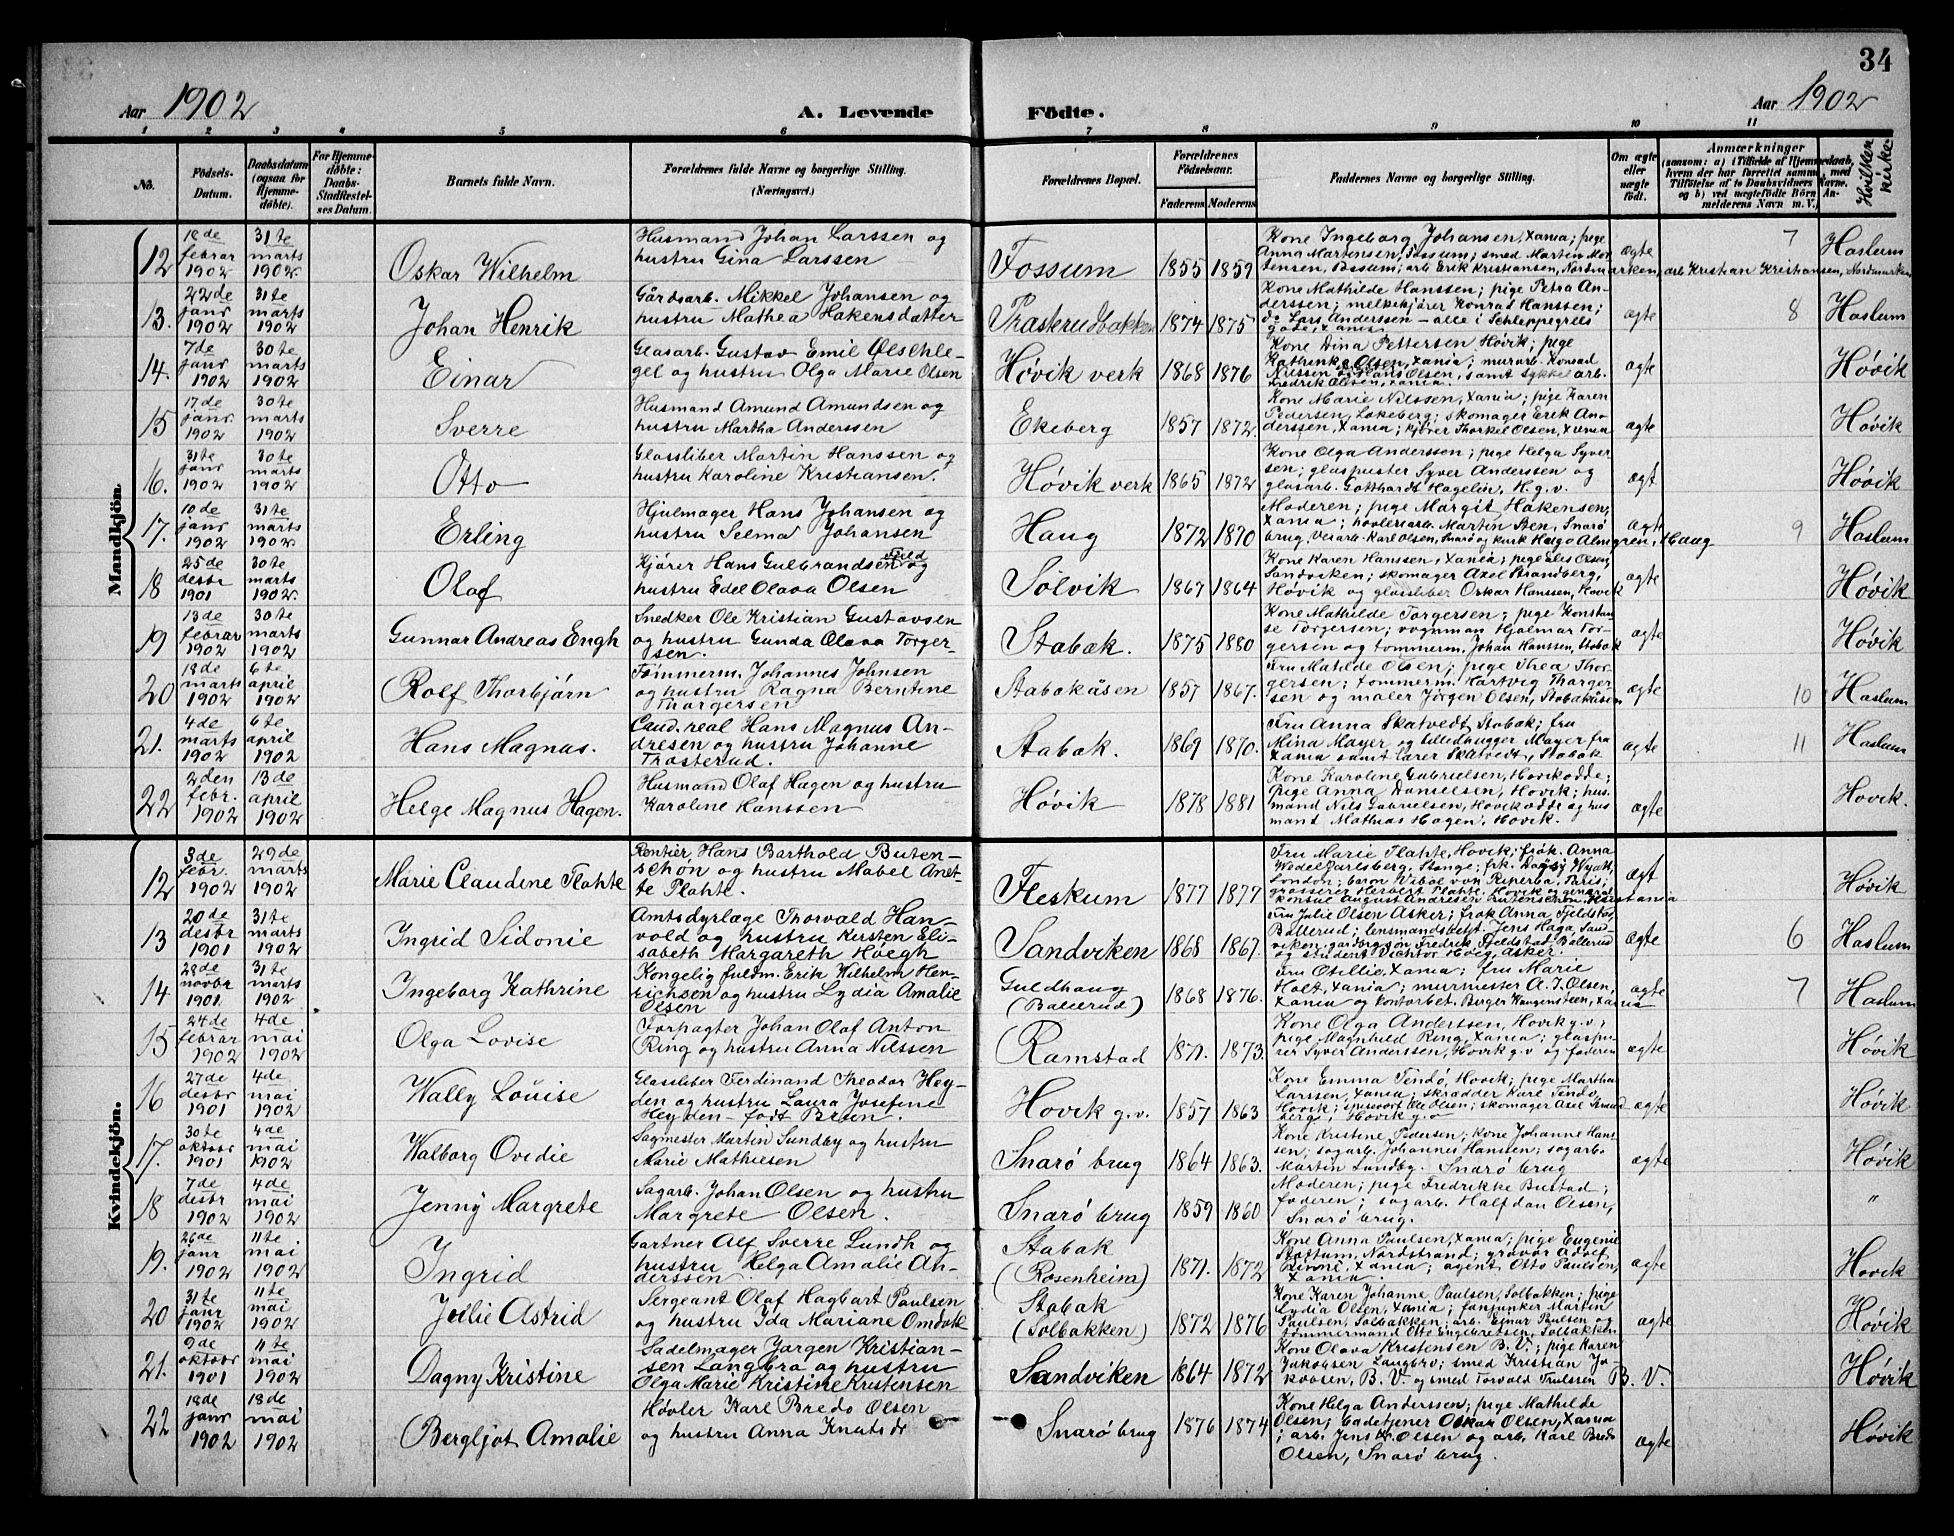 34
Aar 1902
A. Levende
Födte.
Aar 1902
1 2 3 4 5 6 7 8 9 10 11
No.
Födsels-
Datum.
Daabsdatum
(ogsaa for
Hjemme-
döbte).
For Hjemme-
döbte:
Daabs-
Stadfæstel-
ses Datum.
Barnets fulde Navn.
Forældrenes fulde Navne og borgerlige Stilling.
(Næringsvei.)
Forældrenes Bopæl.
Forældrenes
Födselsaar.
Faderens. Moderens.
Faddernes Navne og borgerlige Stilling.
Om ægte
eller
uægte
født.
Anmærkninger
(saasom: a) i Tilfælde af Hjemmedaab,
hvem der har forrettet samme, med
Tilföielse af to Daabsvidners Navne,
og b) ved uægtefödte Börn An-
melderens Navn m. V.)
Hvilken
kirke.
Mandkjön.
12
18de
februar
1902
31te
marts
1902.
Oskar Wilhelm
Husmand Johan Larssen og
hustru Gina Larssen
Fossum
1855 1859
Kone Ingeborg Johansen, Xania; pige
Anna Martensen, Fossum; smed Martin Mor-
tensen, Fossum; arb. Erik Kristiansen, Nordmarken, arb. Kristian Kristiansen, Nordmarken
ægte
7
Haslum
13.
22de
janr
1902
31te
marts
1902
Johan Henrik
Gårdsarb. Mikkel Johansen og
hustru Mathea Hakensdatter
Prasterudbakken
1874 1875
Kone Mathilde Hanssen; pige Petra An-
derssen; melkekjører Konrad Hanssen;
do Lars Anderssen - alle i Schleppegrels
gate, Xania
ægte
8
Haslum
14.
7de
janr
1902
30te
marts
1902
Einar
Glasarb. Gustav Emil Ølschle-
gel og hustru Olga Marie Olsen
Høvik verk
1868 1876
Kone Dina Pettersen Høvik; pige
Kathinka Olsen, Xania; murarb. Konrad
Nilssen og Hans Olsen, samt sykkelarb.
Fredrik Olsen, Xania.
ægte
Høvik
15
17de
janr.
1902
30te
marts
1902
Sverre
Husmand Amund Amundsen og
hustru Martha Anderssen
Ekeberg
1857 1872.
Kone Marie Nilssen, Xania; pige Karen
Pedersen, Løkeberg; skomager Erik An-
derssen, Xania; kjører Thorkel Olsen, Xania
ægte
Høvik
16.
31te
janr
1902
30te
marts
1902
Otto
Glassliber Martin Hanssen og
hustru Karoline Kristiansen.
Høvik verk
1865 1872
Kone Olga Anderssen; pige Helga Syver-
sen; glaspuster Syver Anderssen og
glasarb. Gotthardt Hagelin, H. g. v.
ægt
Høvik
17.
10de
janr
1902
31te
marts
1902.
Erling
Hjulmager Hans Johansen og
hustru Selma Johansen
Haug
1872 1870
Moderen; pige Margit Hakensen,
Xania; høvleriarb. Martin Sten, Snarø
brug, Verarb. Karl Olsen, Snarø og kusk Helge Almgren, Haug
ægte
9
Haslum
18
25de
desbr
1901
30te
marts
1902.
Olaf
Kjører Hans Gulbrandsen Fild og
hustru Edel Olava Olsen
Solvik
1867 1864
Kone Karen Hanssen, Xania; pige Elis Olsen,
Sandviken; skomager Axel Strandberg,
Høvik og glassliber Oskar Hanssen, Høvik
ægte
Høvik
19
13de
februar
1902
30te
marts
1902
Gunnar Andreas Engh
Snedker Ole Kristian Gustavsen
og hustru Gunda Olava Torger-
sen.
Stabæk.
1875 1880
Kone Mathilde Torgersen; pige Konstan-
se Torgersen; vognman Hjalmar Tor-
gersen og tømmerm. Johan Hanssen, Stabæk
ægte
Høvik
20
18de
marts
1902
6te
april
1902
Rolf Thorbjørn
Tømmerm. Johannes Johnsen
og hustru Ragna Berntine
Thorgersen
Stabækåsen
1857 1867.
Fru Matilde Olsen; pige Thea Thor-
gersen; tømmerm. Hartvig Thorger-
sen og maler Jörgen Olsen, Stabækåsen
ægte
10
Haslum
21.
4de
marts
1902
6te
april
1902
Hans Magnus.
Cand. real Hans Magnus An-
dresen og hustru Johanne
Trosterud.
Stabæk.
1869 1870.
Fru Anna Skatvedt, Stabæk; fru
Mina Mayer og billedhugger Mayer fra
Xania samt lærer Skatvedt, Stabæk
ægte
11
Haslum
22
2den
febr.
1902
13de
april
1902
Helge Magnus Hagen.
Husmand Olaf Hagen og hustru
Karoline Hanssen
Høvik
1878 1881
Kone Karoline Gabrielsen, Høvikodde;
pige Anna Danielsen, Høvik; hus-
mand Nils Gabrielsen, Høvikodde og hus
mand Mathias Hagen, Høvik.
ægte
Høvik.
Kvindekjön.
12
3de
febr.
1902
29de
marts
1902
Marie Claudine Plahte
Rentier, Hans Barthold Buten-
schøn og hustru Mabel Anet-
te Plahte.
Fleskum
1877 1877
Fru Marie Plahte, Høvik; frøk. Anna
Wedel Jarlsberg, Stange; frk. Daisy Wyatt,
London; baron Vibal von Riperba, Paris;
grosserer Herbert Plahte, Høvik og general
konsul August Andresen Butenschøn, Kristania
ægt
Høvik
13
20de
desbr
1901
31te
marts
1902
Ingrid Sidonie
Amtsdyrlæge Thorvald Han-
vold og hustru Kersten Eli-
sabeth Margareth Høegh
Sandviken
1868 1867.
Fru Julie Olsen Asker; frøk Anna Fjeldstad,
Ballerud; lensmandsbetj. Jens Haga, Sand-
viken, gårdbr.søn Fredrik Fjeldstad, Ballerud
og student Vichtor Höeg, Asker.
ægte
6
Haslum
14
28de
novbr
1901.
31te
marts
1902
Ingeborg Kathrine
Kongelig fuldm. Erik Wilhelm Hen-
richsen og hustru Lydia Amalie
Olsen
Guldhaug
(Ballerud)
1868 1876.
Fru Otillie, Xania; fru Marie
Holt, Xania; murmester A. J. Olsen,
Xania og kontorbet. Birger Haugensteen, Xania
ægte
7
Haslum
15
24de
februar
1902
4de
mai
1902
Olga Lovise
Forpagter Johan Olaf Anton
Ring og hustru Anna Nilssen
Ramstad
1871. 1873.
Kone Olga Anderssen, Høvik g. v.;
pige Magnhild Ring, Xania; glaspu-
rer Syver Anderssen, Høvik g. v og faderen
ægte
Høvik
16
27de
desbr
1901
4de
mai
1902
Wally Louise
Glassliber Ferdinand Theodor Hey-
den og hustru Laura Josefine
Heyden - født Breen
Høvik g. v.
1857 1863
Kone Emma Tendø, Høvik; pige Martha
Larssen, Xania; skrædder Karl Tendø,
Høvik; Ole Olsen; skomager Axel Strand
berg, Høvik g. v
ægte
Høvik
17.
30te
oktobr
1901
4de
mai
1902
Walborg Ovidie
Sagmester Martin Sundby og hustru
Marie Mathiesen
Snarø brug
1864 1863.
Kone Kristene Pedersen; kone Johanne Hans-
sen; sagarb. Johannes Hanssen; sagarb.
Martin Sundby. Snarø brug
ægte
Høvik
18
7de
desbr
1902
4de
mai
1902
Jenny Margrete
Sagarb. Johan Olsen og hustru
Margrete Olsen.
Snarø brug
1859 1860
Moderen; pige Fredrikke Bustad;
faderen; sagarb. Halfdan Olsen,
Snarø brug.
"
19.
26de
janr
1902
11te
mai
1902
Ingrid
Gartner Alf Sverre Lundh og
hustru Helga Amalie An-
derssen
Stabæk
(Rosenheim)
1871. 1872
Kone Anna Paulsen, Xania; pige Eugenie
Skottum, Nordstrand; gravør Adolf
Xania; agent Otto Paulsen,
Xania.
ægte
Høvik
20
31te
janr
1902
11te
mai
1902
Julie Astrid
Sergeant Olaf Hagbart Paulsen
og hustru Ida Mariane Omdal
Stabæk
(Solbakken)
1872 1876
Kone Karen Johanne Paulsen, Solbakken; pige
Lydia Olsen, Xania; fanjunker Martin
Paulsen, Solbakken; arb. Einar Paulsen og
tømmermand Otto Engebretsen, Solbakken
ægte
Høvik
21.
9de
oktobr
1901
11te
mai
1902
Dagny Kristine
Sadelmager Jørgen Kristian-
sen Langbra og hustru
Olga Marie Kristine Kristensen
Sandviken
1864 1872
Kone Olava Kristensen B. V.; pige Karen
Jakobsen Langbro; smed Kristian Ja-
kobsen, B. V. og smed Torvald Trulssen B. V.
Høvik
22
18de
janr
1902
18de
mai
1902
Bergljot Amalie
Høvler Karl Bredo Olsen
og hustru Anna Knutsdr
Snarø brug
1876 1874
Kone Helga Anderssen; pige Mathilde
Olsen; Oskar Olsen, Xania
; arb. Jens Olsen og arb. Karl Bredo
Olsen, Snarø brug.
ægte
Høvik